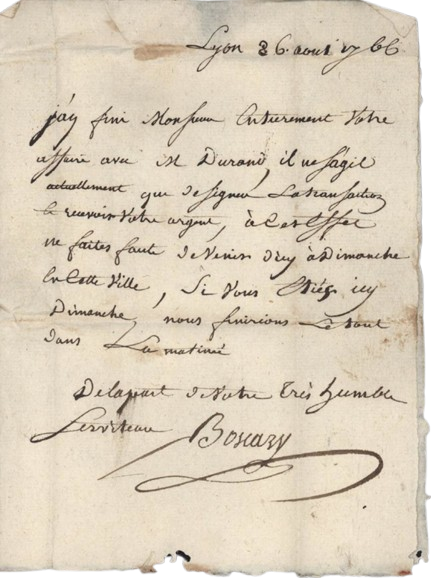 Lyon 26 aout 1766
j'ay fini Monsieur Entierement Votre
affaire avec M Durand, il ne sagit
actuellement que de signer La transaction
& recevoir Votre argent, à Cet Effet
ne faites faute de Venir d'icy à Dimanche
En Cette Ville, Si Vous Etiés icy
Dimanche, nous finirions Le tout
dans La matinée
De la part de Votre très humble
Serviteur Boscary